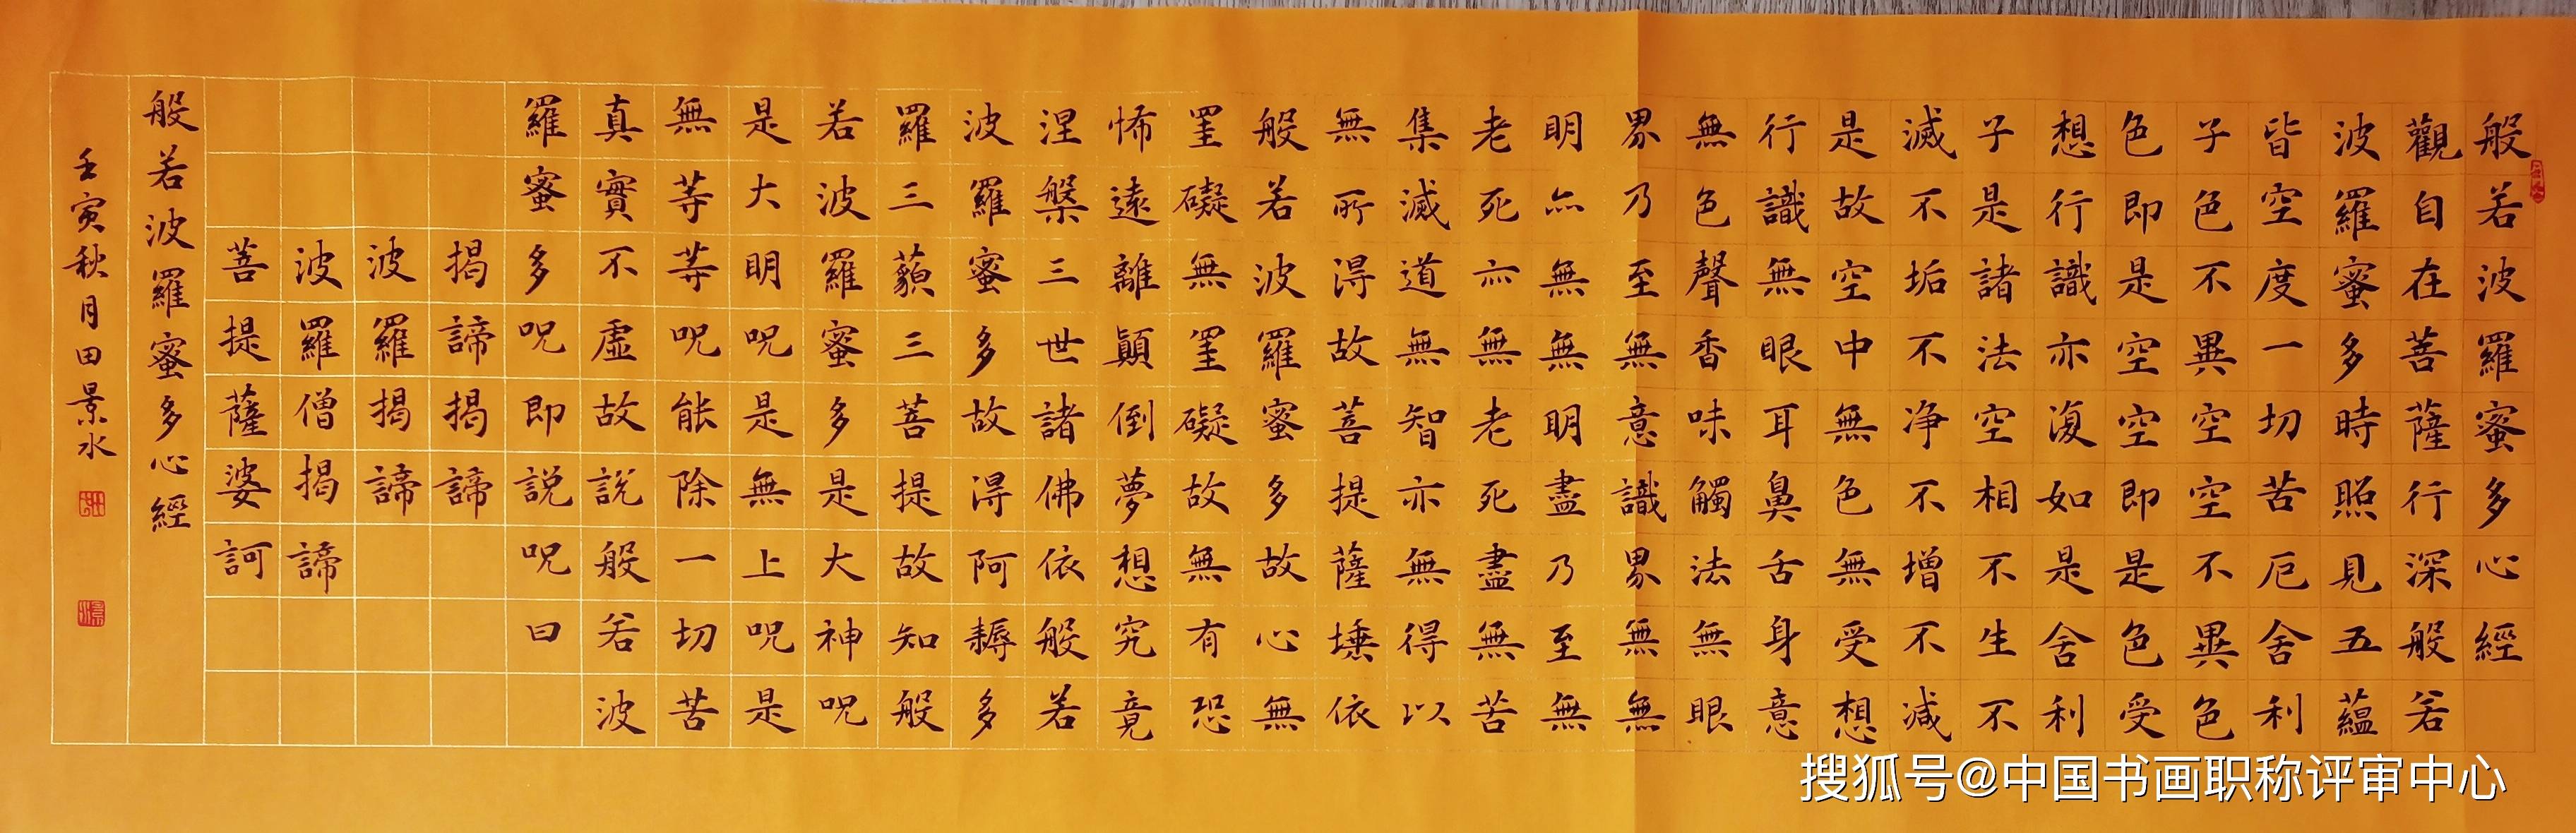 般若波羅蜜多心經
觀自在菩薩行深般若
波羅蜜多時照見五蘊
皆空度一切苦厄舍利
子色不異空空不異色
色即是空空即是色受
想行識亦復如是舍利
子是諸法空相不生不
滅不垢不净不增不減
是故空中無色無受想
行識無眼耳鼻舌身意
無色聲香味觸法無眼
界乃至無意識界無無
明亦無無明盡乃至無
老死亦無老死盡無苦
集滅道無智亦無得以
無所得故菩提薩埵依
般若波羅蜜多故心無
罣礙無罣礙故無有恐
怖遠離顛倒夢想究竟
涅槃三世諸佛依般若
波羅蜜多故得阿耨多
羅三藐三菩提故知般
若波羅蜜多是大神呪
是大明呪是無上呪是
無等等呪能除一切苦
真實不虛故說般若波
羅蜜多呪即說呪曰
揭諦揭諦
波羅揭諦
波羅僧揭諦
菩提薩婆訶
般若波羅蜜多心經
壬寅秋月田景水
搜狐号@中国书画职称评审中心